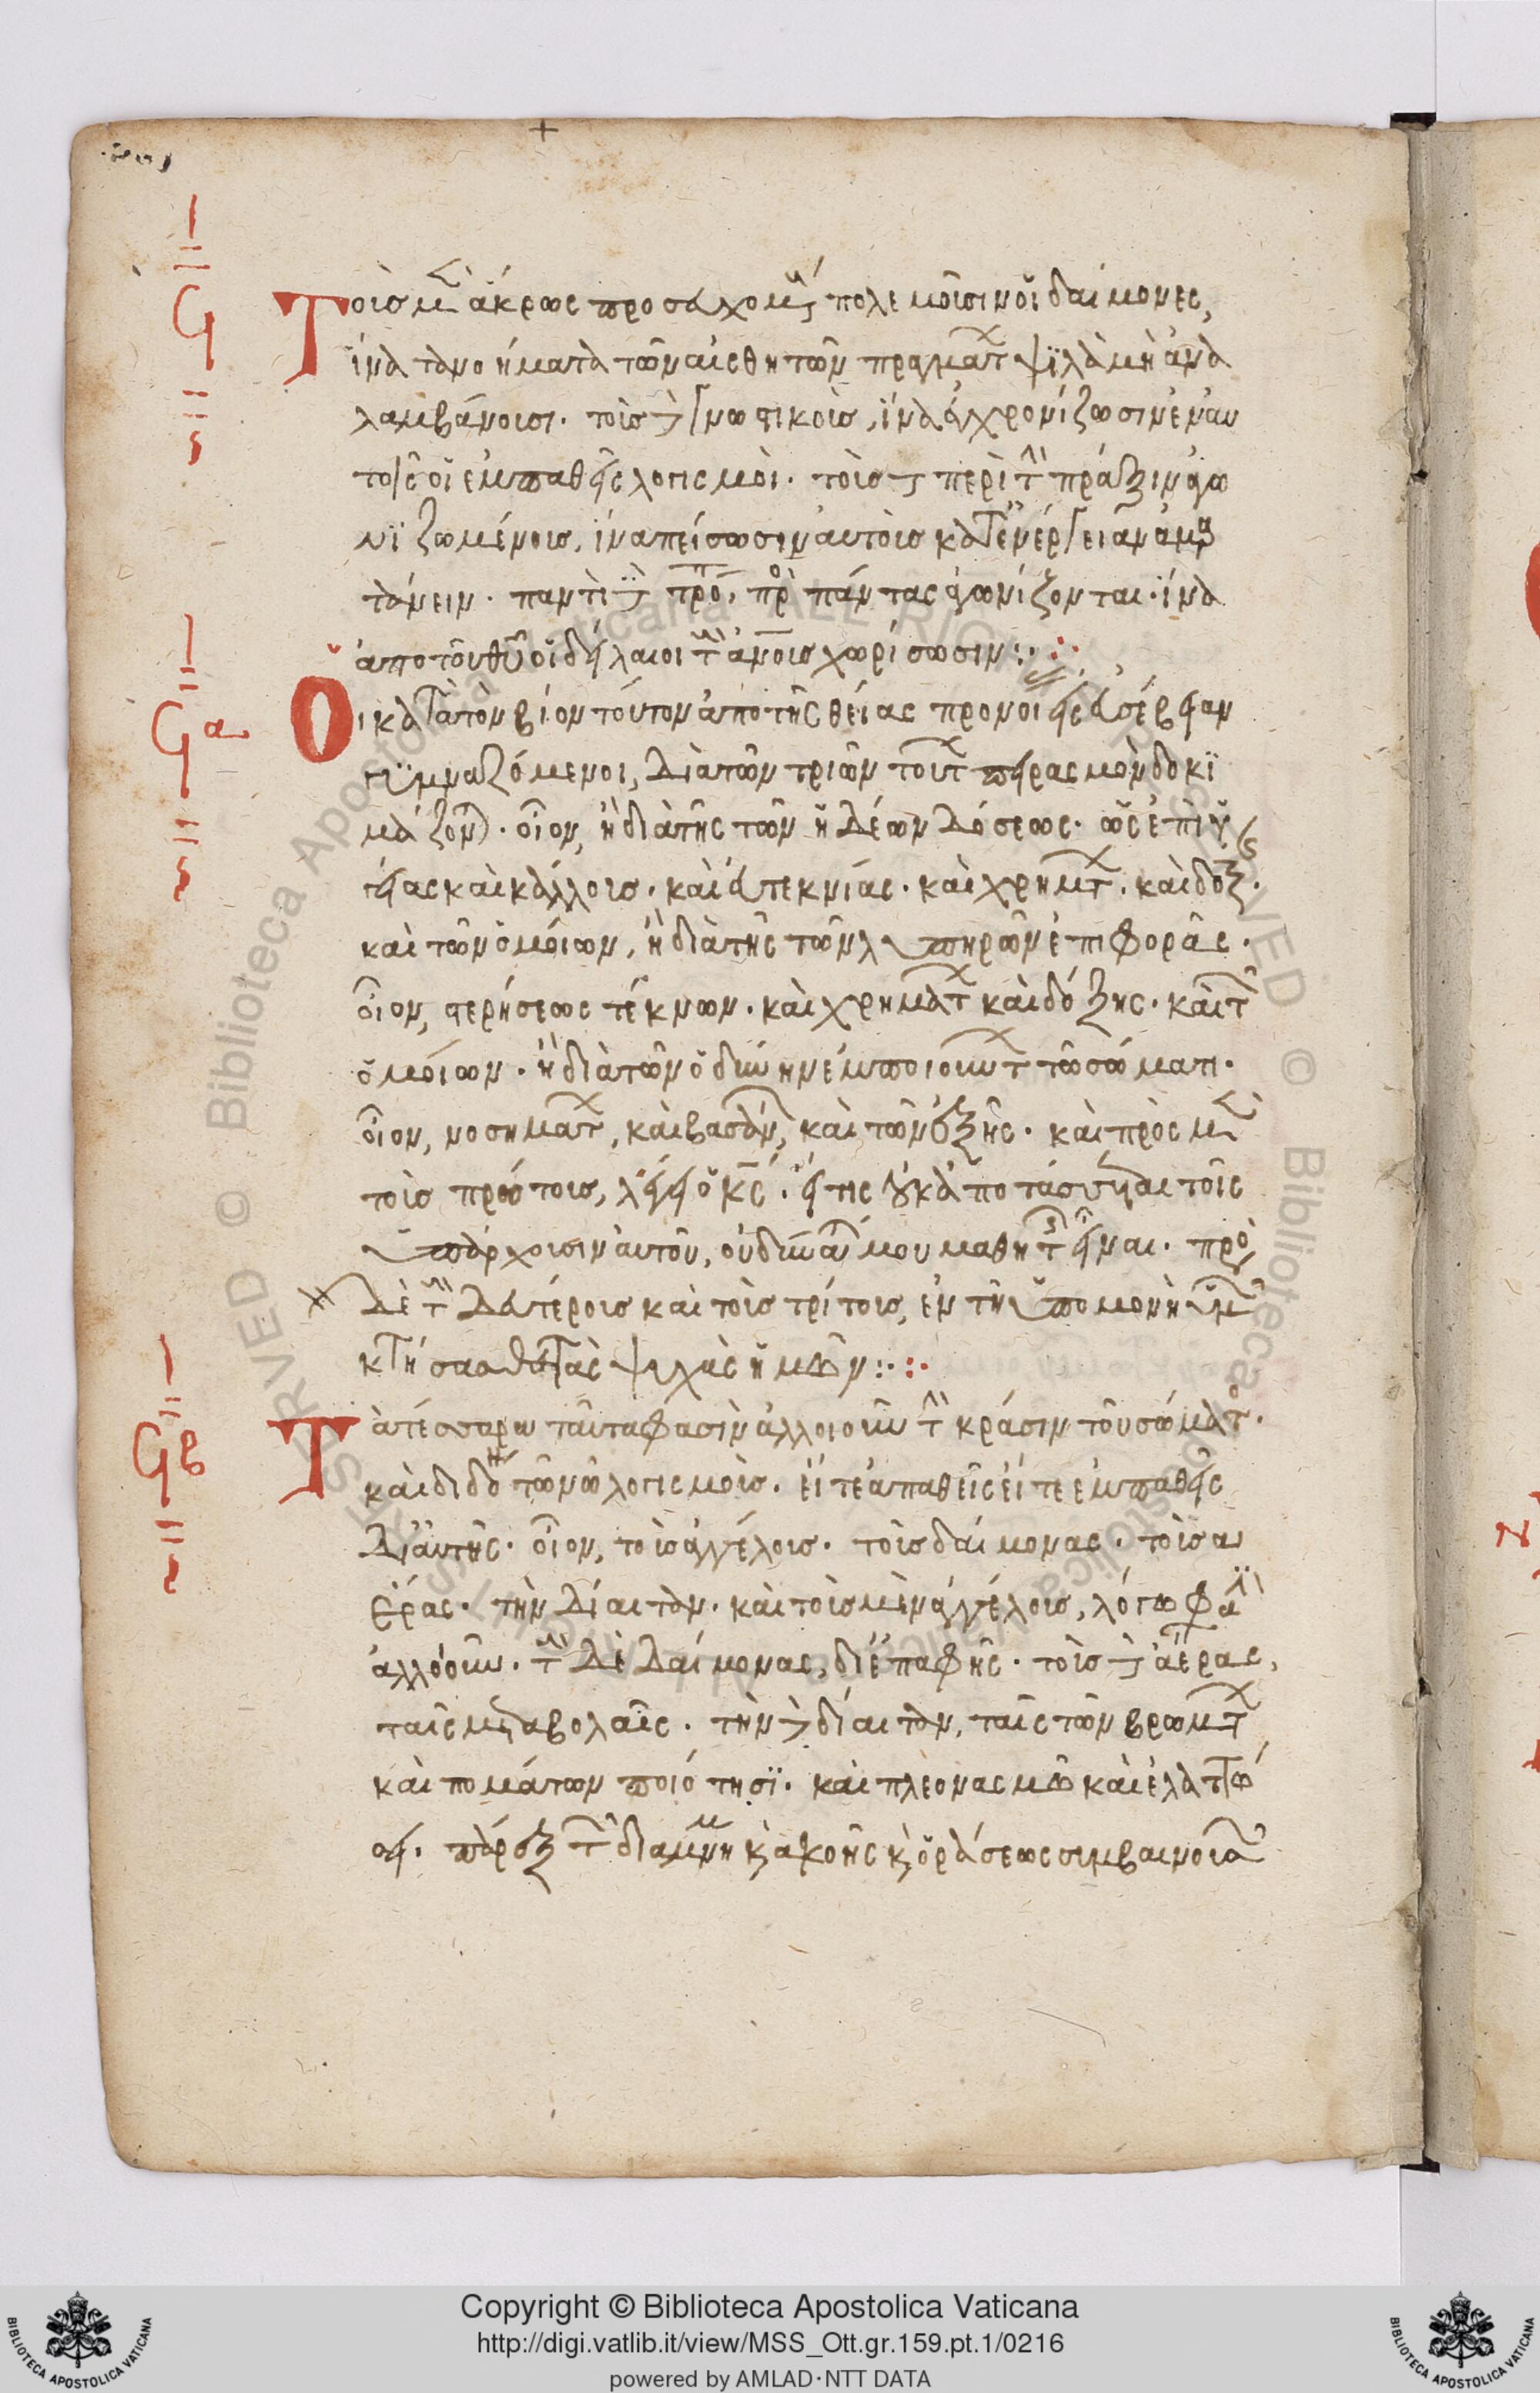 Τοῖς μὲν ἄκρως προσευχομένοις πολεμοῦσιν οἱ δαίμονες,
ἵνα τὰ νοήματα τῶν αἰσθητῶν πραγμάτων ψιλὰ μὴ ἀνα
λαμβάνουσι. τοῖς δὲ γνωστικοῖς, ἵνα ἐγχρονίζωσιν ἐν αυ
τοῖς οἱ ἐμπαθεῖς λογισμοί. τοὺς δὲ περὶ τὴν πρᾶξιν ἀγω
νϊζωμένους, ἵνα πείσωσιν αὐτοὺς κατ' ἐνέργειαν ἁμαρ
τάνειν. παντὶ δὲ τρόπῳ, πρὸς πάντας ἀγωνίζονται. ἵνα
ἀπὸ τοῦ θεοῦ οἱ δείλαιοι τοὺς ἀνθρώπους χωρίσωσιν:
Οἱ κατὰ τὸν βίον τοῦτον ἀπὸ τῆς θείας προνοίας εἰς εὐσέβειαν
γϋμναζόμενοι, διὰ τῶν τριῶν τούτων πειρασμῶν δοκϊ
μάζονται. οἷον, ἢ διὰ τῆς τῶν ἡδέων δόσεως. ὡς ἐπὶ ὑγ
είας καὶ κάλλους. καὶ εὐτεκνίας. καὶ χρημάτων. καὶ δόξης.
καὶ τῶν ὁμοίων, ἢ διὰ τῆς τῶν λυπηρῶν ἐπιφορᾶς.
οἷον, στερήσεως τέκνων. καὶ χρημάτων καὶ δόξης. καὶ τῶν
ὁμοίων. ἢ διὰ τῶν ὀδύνην ἐμποιούντων τῷ σώματι.
οἷον, νοσημάτων, καὶ βασάνων, καὶ τῶν ἑξῆς. καὶ πρὸς μὲν
τοὺς πρώτους, λέγει ὁ κύριος. εἴ τις οὐκ ἀποτάσσεται τοῖς
ὑπάρχουσιν αὐτοῦ, οὐ δύναταί μου μαθητὴς εἶναι. πρὸς
δὲ τοὺς δευτέρους καὶ τοὺς τρίτους, ἐν τῇ ὑπομονῇ ὑμῶν
κτήσασθε τὰς ψυχὰς ὑμῶν:
Τὰ τέσσαρα ταῦτα φασὶν ἀλλοιοῦν τὴν κράσιν τοῦ σώματος.
καὶ διδόναι τῷ νῷ λογισμούς. εἴτε ἀπαθεῖς εἴτε ἐμπαθεῖς
δι' αὐτῆς. οἷον, τοὺς ἀγγέλους. τοὺς δαίμονας. τοὺς α
έρας. τὴν δίαιταν. καὶ τοὺς μὲν ἀγγέλους, λόγῳ φασὶν
ἀλλοιοῦν. τοὺς δὲ δαίμονας, δι' ἐπαφῆς. τοὺς δὲ ἀέρας,
ταῖς μεταβολαῖς. τὴν δὲ δίαιταν, ταῖς τῶν βρωμάτων
καὶ πομάτων ποιότησϊ. καὶ πλεονασμῷ καὶ ἐλαττώ
σει. πάρεξ τῶν διὰ μνήμης καὶ ἀκοῆς καὶ ὁράσεως συμβαινουσῶν
Copyright © Biblioteca Apostolica Vaticana
http://digi.vatlib.it/view/MSS_Ott.gr.159.pt.1/0216
powered by AMLAD·NTT DATA